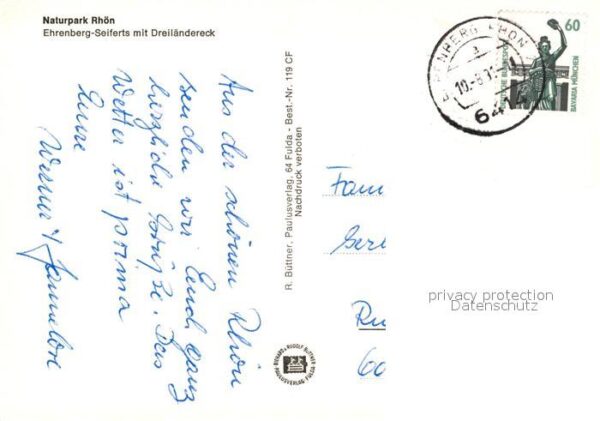 Naturpark Rhön
Ehrenberg-Seiferts mit Dreiländereck
Aus der schönen Rhön
senden wir Euch ganz
herzliche Grüße. Das
Wetter ist prima
Eure
Werner u. Hannelore
R. Büttner, Paulusverlag, 64 Fulda - Best.-Nr. 119 CF
Nachdruck verboten
RICHARD & RUDOLF BÜTTNER
PAULUSVERLAG FULDA
60
DEUTSCHE BUNDESPOST
BAVARIA MÜNCHEN
EHRENBERG, RHÖN
a
6414
Fam
Ru
60
privacy protection
Datenschutz